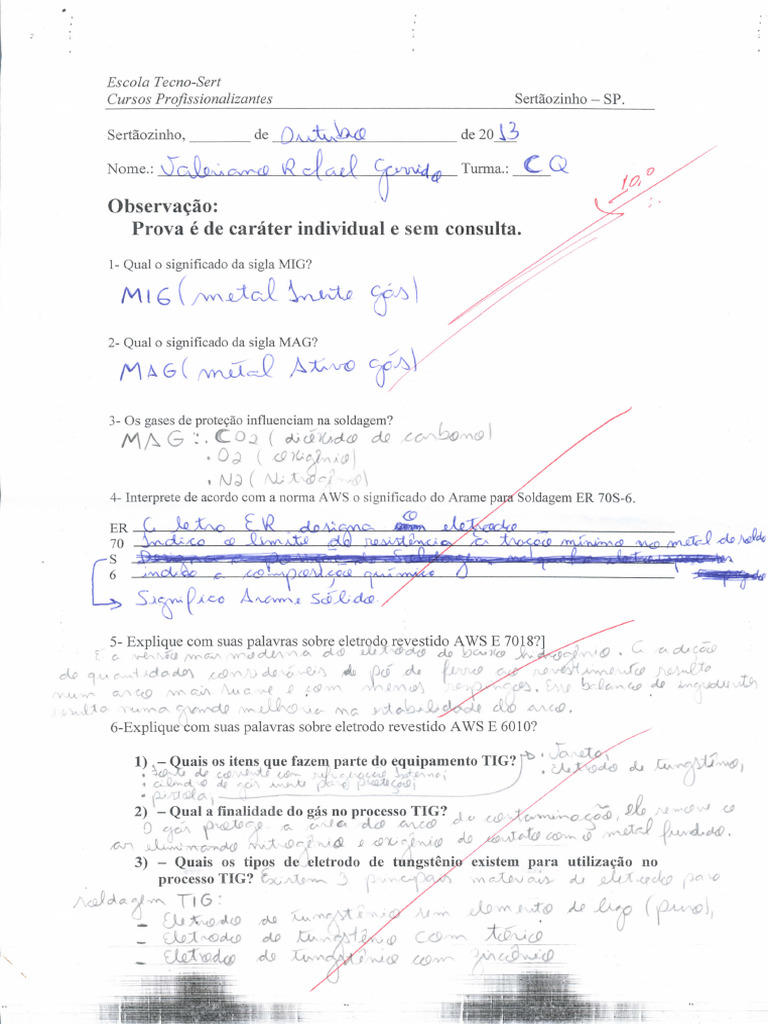 Escola Tecno-Sert
Cursos Profissionalizantes Sertãozinho – SP.
Sertãozinho, ________ de Outubro de 2013
Nome.: Valeriano Rafael Garrido Turma.: CQ
10,0
Observação:
Prova é de caráter individual e sem consulta.
1- Qual o significado da sigla MIG?
MIG (metal Inerte gás)
2- Qual o significado da sigla MAG?
MAG (metal Ativo gás)
3- Os gases de proteção influenciam na soldagem?
MAG: . CO2 (dióxido de carbono)
. O2 (oxigênio)
. N2 (Nitrogênio)
4- Interprete de acordo com a norma AWS o significado do Arame para Soldagem ER 70S-6.
ER A letra ER designa o eletrodo
70 Indica o limite da resistência à tração mínimo no metal de solda
S
6 indica a composição química
Significa Arame Sólido.
5- Explique com suas palavras sobre eletrodo revestido AWS E 7018?]
É a versão mais moderna do eletrodo de baixo hidrogênio. A adição
de quantidades consideráveis de pó de ferro ao revestimento resulta
num arco mais suave e com menos respingos. Esse balanço de ingredientes
resulta numa grande melhoria na estabilidade do arco.
6-Explique com suas palavras sobre eletrodo revestido AWS E 6010?
1) – Quais os itens que fazem parte do equipamento TIG? . Vareta,
. fonte de corrente com refrigeração interna, . Eletrodo de tungstênio,
. cilindro de gás inerte para proteção,
. pistola,
2) – Qual a finalidade do gás no processo TIG?
O gás protege a área do arco da contaminação, ele remove o
ar eliminando nitrogênio e oxigênio de contato com o metal fundido.
3) – Quais os tipos de eletrodo de tungstênio existem para utilização no
processo TIG? Existem 3 principais materiais de eletrodo para
soldagem TIG:
- Eletrodo de tungstênio sem elemento de liga (puro),
- Eletrodo de tungstênio com tório
- Eletrodo de tungstênio com zircônio